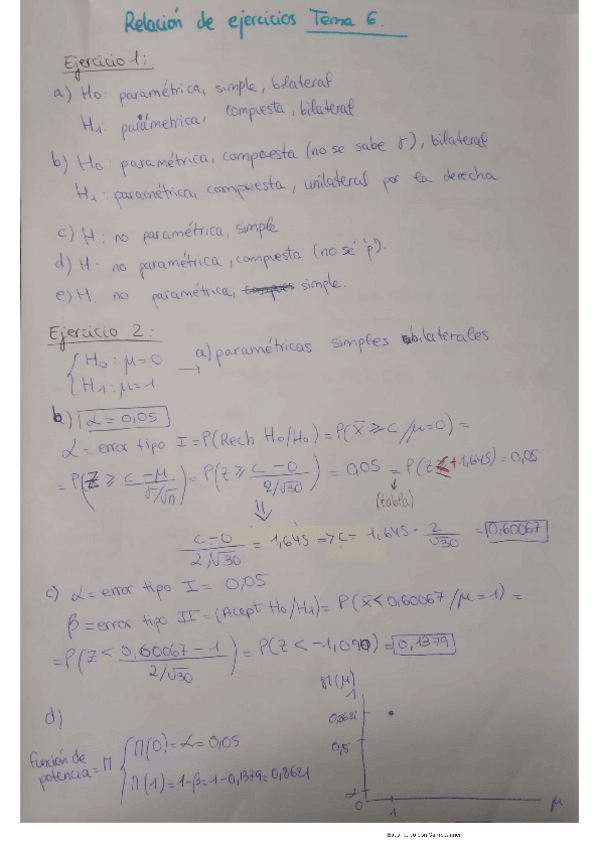 Relación de ejercicios Tema 6.
Ejercicio 1:
a) H0: paramétrica, simple, bilateral
H1: paramétrica, compuesta, bilateral
b) H0: paramétrica, compuesta (no se sabe σ), bilateral
H1: paramétrica, compuesta, unilateral por la derecha
c) H: no paramétrica, simple
d) H: no paramétrica, compuesta (no sé 'p').
e) H: no paramétrica, simple.
Ejercicio 2:
{H0: μ=0
{H1: μ=1 → a) paramétricas simples bilaterales
b) α = 0,05
α = error tipo I = P(Rech H0/H0) = P(x̄ ≥ c /μ=0) =
= P(Z ≥ (c-μ)/(σ/√n)) = P(Z ≥ (c-0)/(2/√30)) = 0,05 = P(Z ≥ +1,645) = 0,05
⇓ ↓ (tabla)
(c-0)/(2/√30) = 1,645 => c = 1,645 · 2/√30 = 0,60067
c) α = error tipo I = 0,05
β = error tipo II = (Acept H0/H1) = P(x̄ < 0,60067 / μ = 1) =
= P(Z < (0,60067 - 1)/(2/√30)) = P(Z < -1,090) = 0,1379
d)
Función de potencia = Π { Π(0) = α = 0,05
Π(1) = 1-β = 1-0,1379 = 0,8621
Π(μ)
1
0,8621
0,5
α
0 1 μ